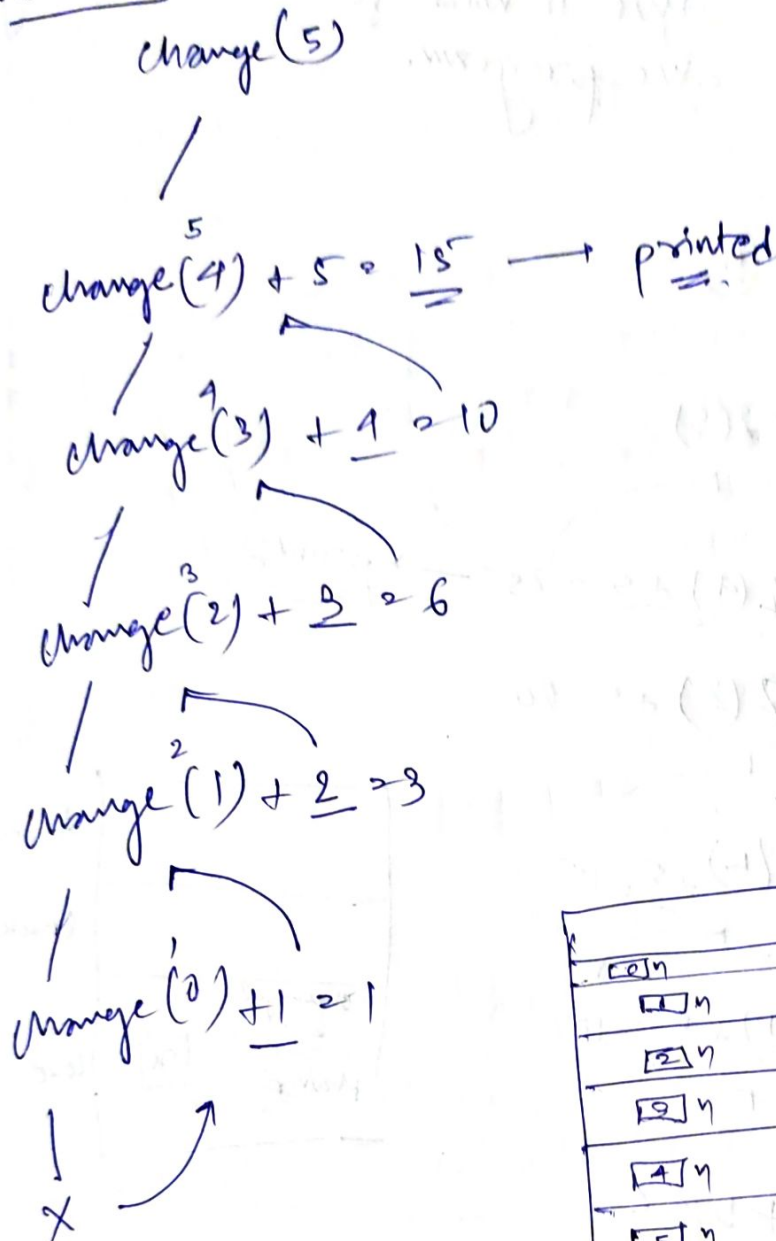 change(5)
5
change(4) + 5 = 15 → printed
4
change(3) + 4 = 10
3
change(2) + 3 = 6
2
change(1) + 2 = 3
1
change(0) + 1 = 1
x
0 n
1 n
2 n
3 n
4 n
5 n